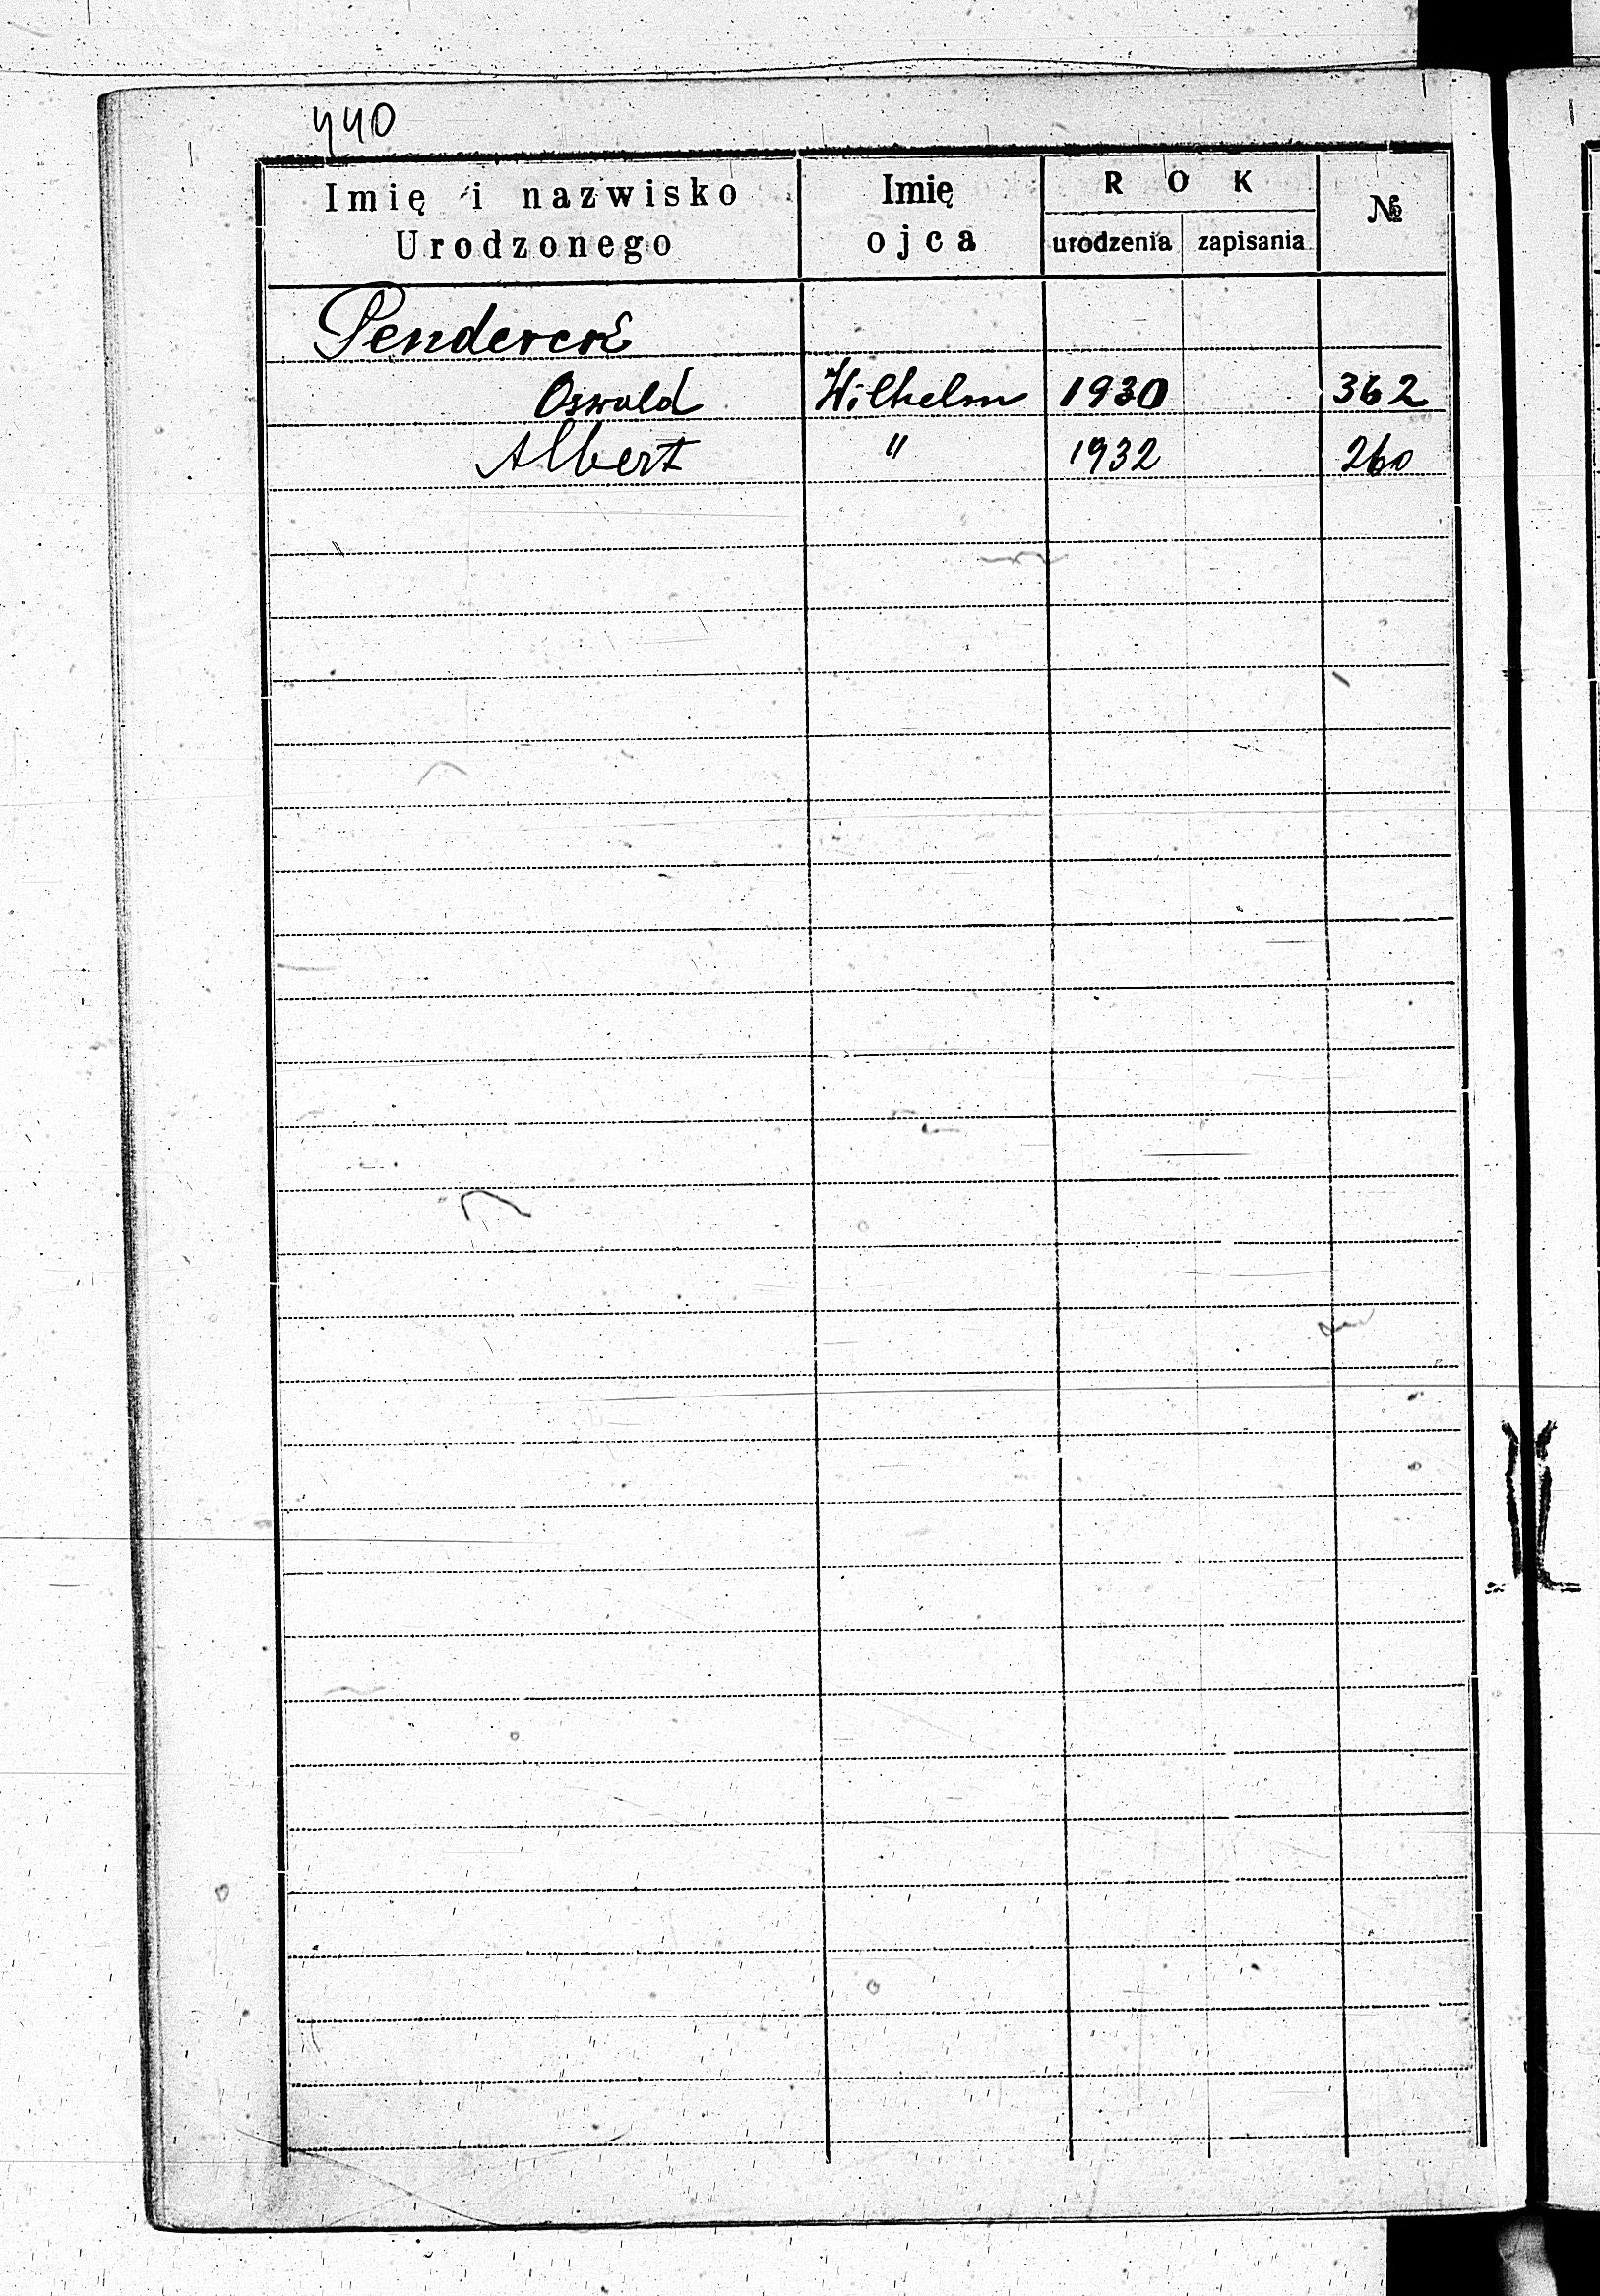 440
Imię i nazwisko Urodzonego
Imię ojca
ROK
urodzenia zapisania
№
Penderck
Oswald Wilhelm 1930 362
Albert " 1932 260